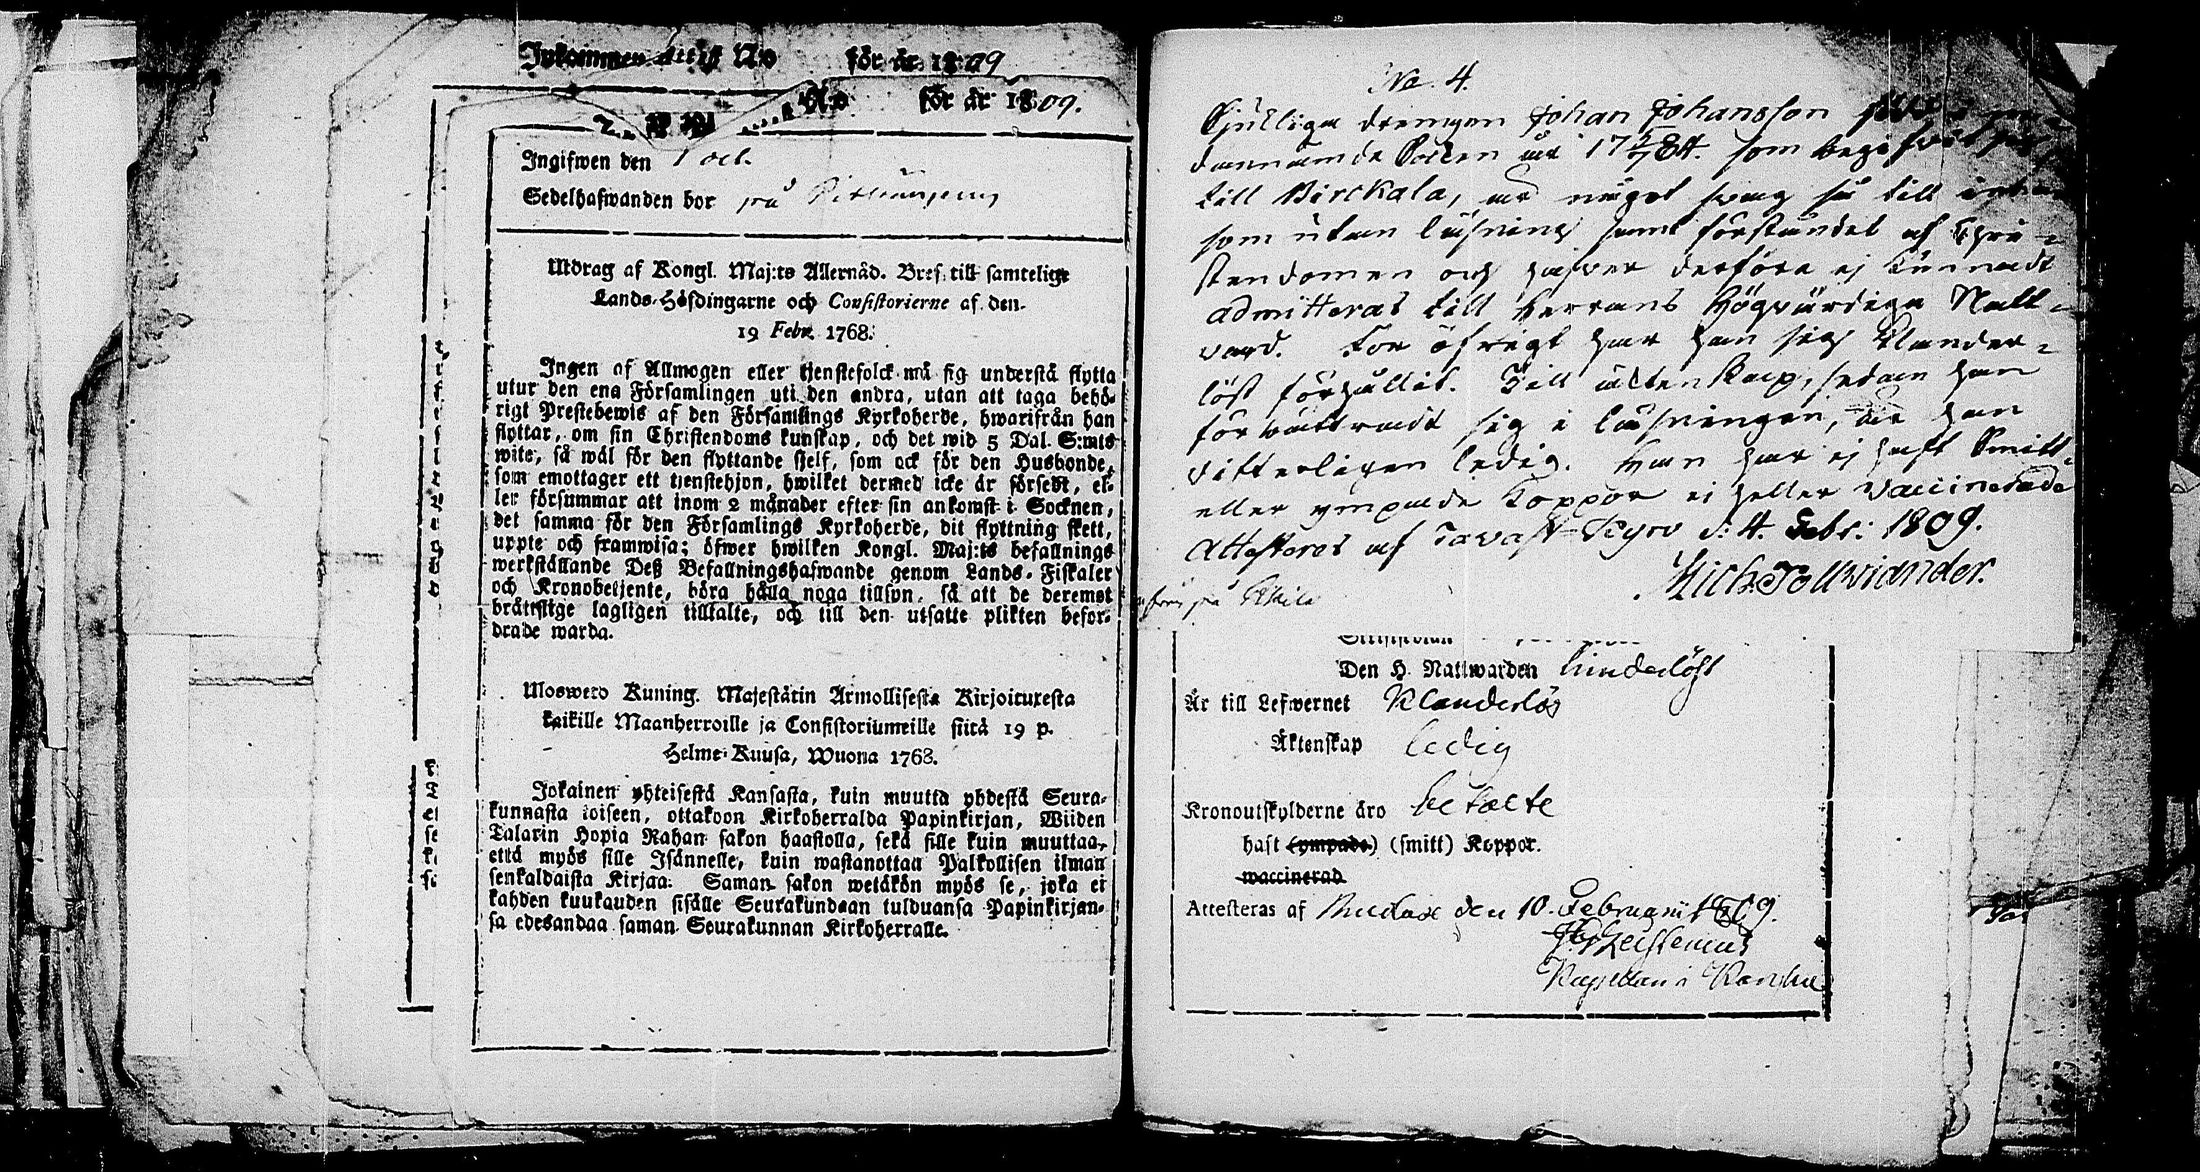 Inkommen Attest No för år 1809
No för år 1809.
Ingifwen den 1 oct.
Sedelhafwanden bor på
Utdrag af Kongl. Maj:ts Allernåd. Bref till samtelige
Lands-Höfdingarne och Consistorierne af den
19 Febr. 1768.
Ingen af Allmogen eller tjenstefolck må sig understå flytta
utur den ena Församlingen uti den andra, utan att taga behö-
rigt Prestebewis af den Församlings Kyrkoherde, hwarifrån han
flyttar, om sin Christendoms kunskap, och det wid 5 Dal. S:mts
wite, så wäl för den flyttande sjelf, som ock för den Husbonde,
som emottager ett tjenstehjon, hwilket dermed icke är försedt, el-
ler försummar att inom 2 månader efter sin ankomst i Socknen,
det samma för den Församlings Kyrkoherde, dit flyttning skett,
uppte och framwisa; öfwer hwilken Kongl. Maj:ts befallnings
werkställande Deß Befallningshafwande genom Lands-Fiskaler
och Kronobetjente, böra hålla noga tillsyn, så att de deremot
bråttslige lagligen tilltalte, och till den utsatte plikten befor-
drade warda.
Ulosweto Kuning. Majestätin Armollisesta Kirjoituxesta
kaikille Maanherroille ja Consistoriumeille siitä 19 p.
Helme-Kuusa, Wuona 1768.
Jokainen yhteisestä Kansasta, kuin muutta yhdestä Seura-
kunnasta toiseen, ottakoon Kirkoherralda Papinkirjan, Wiiden
Talarin Hopia Rahan sakon haastolla, sekä sille kuin muuttaa,
että myös sille Isännelle, kuin wastanottaa Palkollisen ilman
senkaldaista Kirjaa. Saman sakon wetäkön myös se, joka ei
kahden kuukauden sisälle Seurakundaan tulduansa Papinkirjan-
sa edesandaa saman Seurakunnan Kirkoherralle.
No 4.
drengen Johan Johansson
Socken är 17 84. som begifvit sig
till Birckala, är något svag så till
som utan läsning samt förståndet af Chri-
stendomen och hafver derföre ej kunnat
admitteras till Herrans Högvärdiga Natt-
vard. För öfrigt har han sig klander-
löst förhållit. Till äktenskap, sedan han
förbättradt sig i läsningen, är han
vitterligen ledig. Han har ej haft Smitt-
eller ympade Koppor ej heller Vaccinerade
Attesteras af Tavast-Kyro d: 4. Febr: 1809.
Mich: Tollviander.
Den H. Nattwarden
Är till Lefwernet Klanderlös
Äktenskap ledig
Kronoutskylderne äro betalte
haft (ympade) (smitt) Koppor.
waccinerad
Attesteras af den 10. Februarii 1809.
Kapellan i